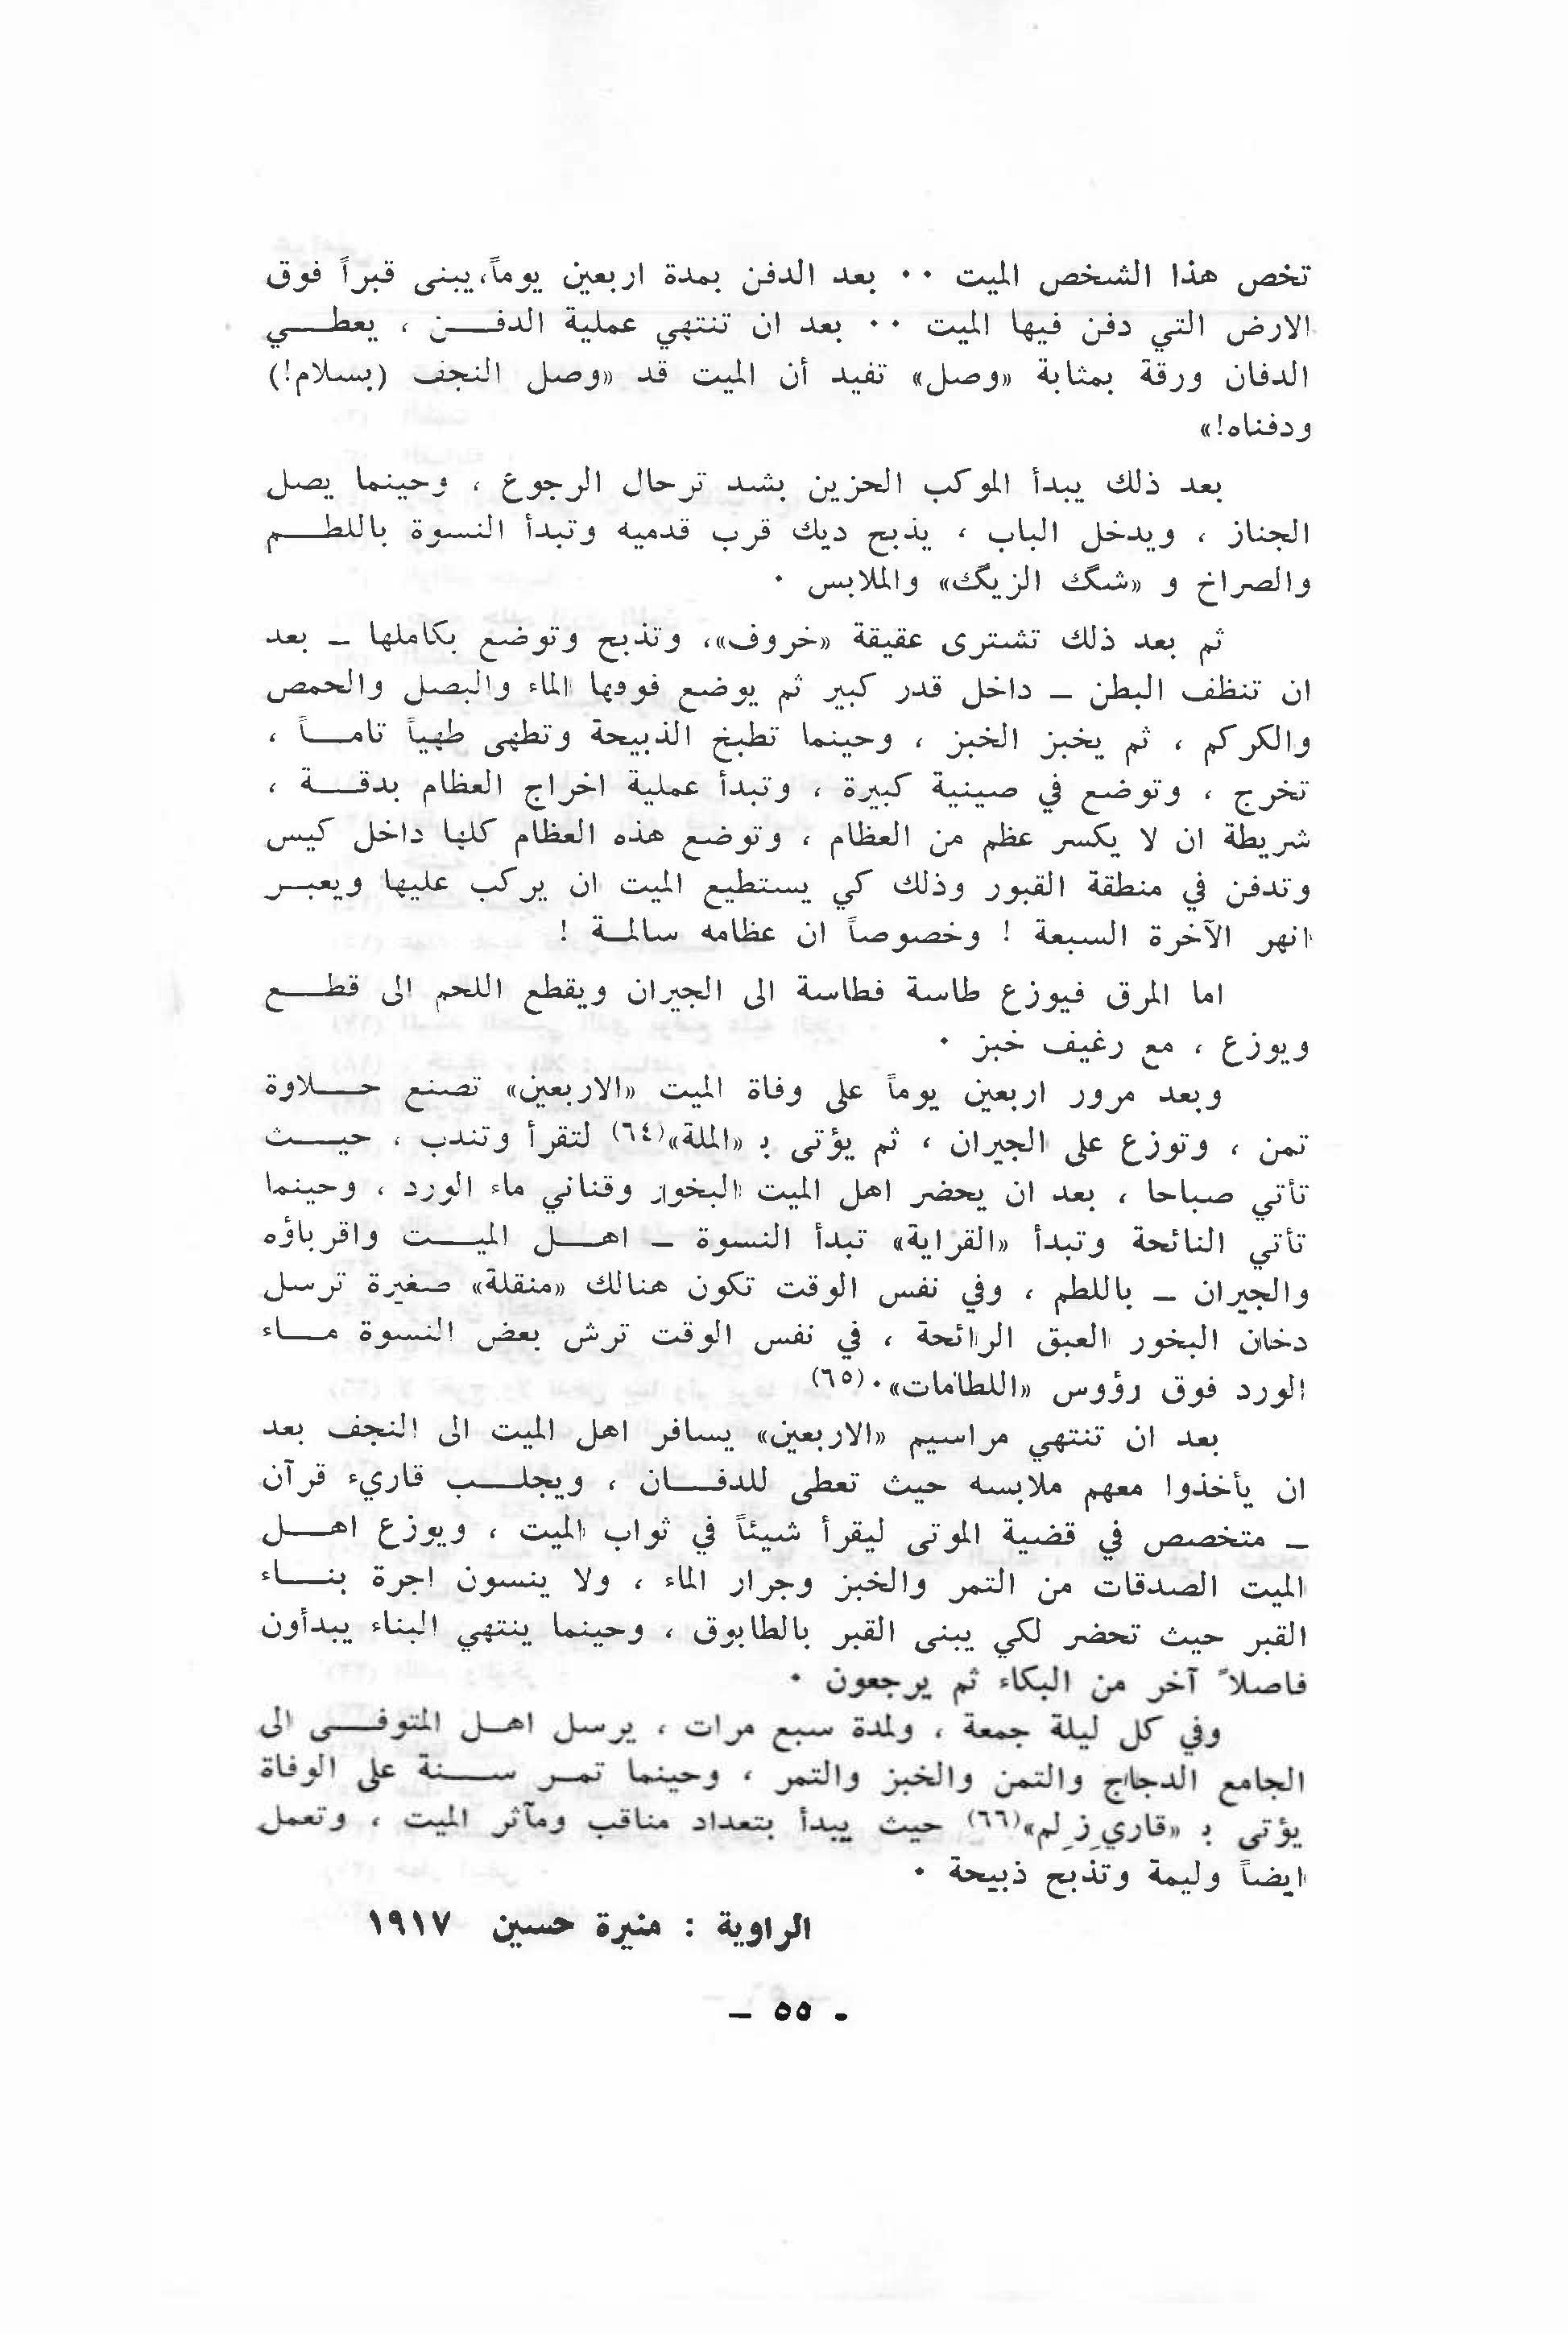 تخص هذا الشخص الميت ٠٠ بعد الدفن بمدة اربعين يوماً، يبنى قبراً فوق
الارض التي دفن فيها الميت ٠٠ بعد ان تنتهي عملية الدفن ، يعطي
الدفان ورقة بمثابة «وصل» تفيد أن الميت قد «وصل النجف (بسلام!)
ودفناه!»
بعد ذلك يبدأ الموكب الحزين بشد ترحال الرجوع ، وحينما يصل
الجناز ، ويدخل الباب ، يذبح ديك قرب قدميه وتبدأ النسوة باللطم
والصراخ و «شگك الزيگك» والملابس ٠
ثم بعد ذلك تشترى عقيقة «خروف»، وتذبح وتوضع بكاملها ــ بعد
ان تنظف البطن ــ داخل قدر كبير ثم يوضع فوقها الماء والبصل والحمص
والكركم ، ثم يخبز الخبز ، وحينما تطبخ الذبيحة وتطهى طهياً تاماً ،
تخرج ، وتوضع في صينية كبيرة ، وتبدأ عملية اخراج العظام بدقة ،
شريطة ان لا يكسر عظم من العظام ، وتوضع هذه العظام كلها داخل كيس
وتدفن في منطقة القبور وذلك كي يستطيع الميت ان يركب عليها ويعبر
انهر الآخرة السبعة ! وخصوصاً ان عظامه سالمة !
اما المرق فيوزع طاسة فطاسة الى الجيران ويقطع اللحم الى قطع
ويوزع ، مع رغيف خبز ٠
وبعد مرور اربعين يوماً على وفاة الميت «الاربعين» تصنع حلاوة
تمن ، وتوزع على الجيران ، ثم يؤتى بـ «الملة»(٦٤) لتقرأ وتندب ، حيث
تأتي صباحا ، بعد ان يحضر اهل الميت البخور وقناني ماء الورد ، وحينما
تأتي النائحة وتبدأ «القراية» تبدأ النسوة ــ اهل الميت واقرباؤه
والجيران ــ باللطم ، وفي نفس الوقت تكون هنالك «منقلة» صغيرة ترسل
دخان البخور العبق الرائحة ، في نفس الوقت ترش بعض النسوة ماء
الورد فوق رؤوس «اللطامات»٠(٦٥)
بعد ان تنتهي مراسيم «الاربعين» يسافر اهل الميت الى النجف بعد
ان يأخذوا معهم ملابسه حيث تعطى للدفان ، ويجلب قاريء قرآن
ــ متخصص في قضية الموتى ليقرأ شيئاً في ثواب الميت ، ويوزع اهل
الميت الصدقات من التمر والخبز وجرار الماء ، ولا ينسون اجرة بناء
القبر حيث تحضر لكي يبنى القبر بالطابوق ، وحينما ينتهي البناء يبدأون
فاصلاً آخر من البكاء ثم يرجعون ٠
وفي كل ليلة جمعة ، ولمدة سبع مرات ، يرسل اهل المتوفى الى
الجامع الدجاج والتمن والخبز والتمر ، وحينما تمر سنة على الوفاة
يؤتى بـ «قاريِ زِلم»(٦٦) حيث يبدأ بتعداد مناقب ومآثر الميت ، وتعمل
ايضاً وليمة وتذبح ذبيحة ٠
الراوية : منيرة حسين ١٩١٧
- ٥٥ -